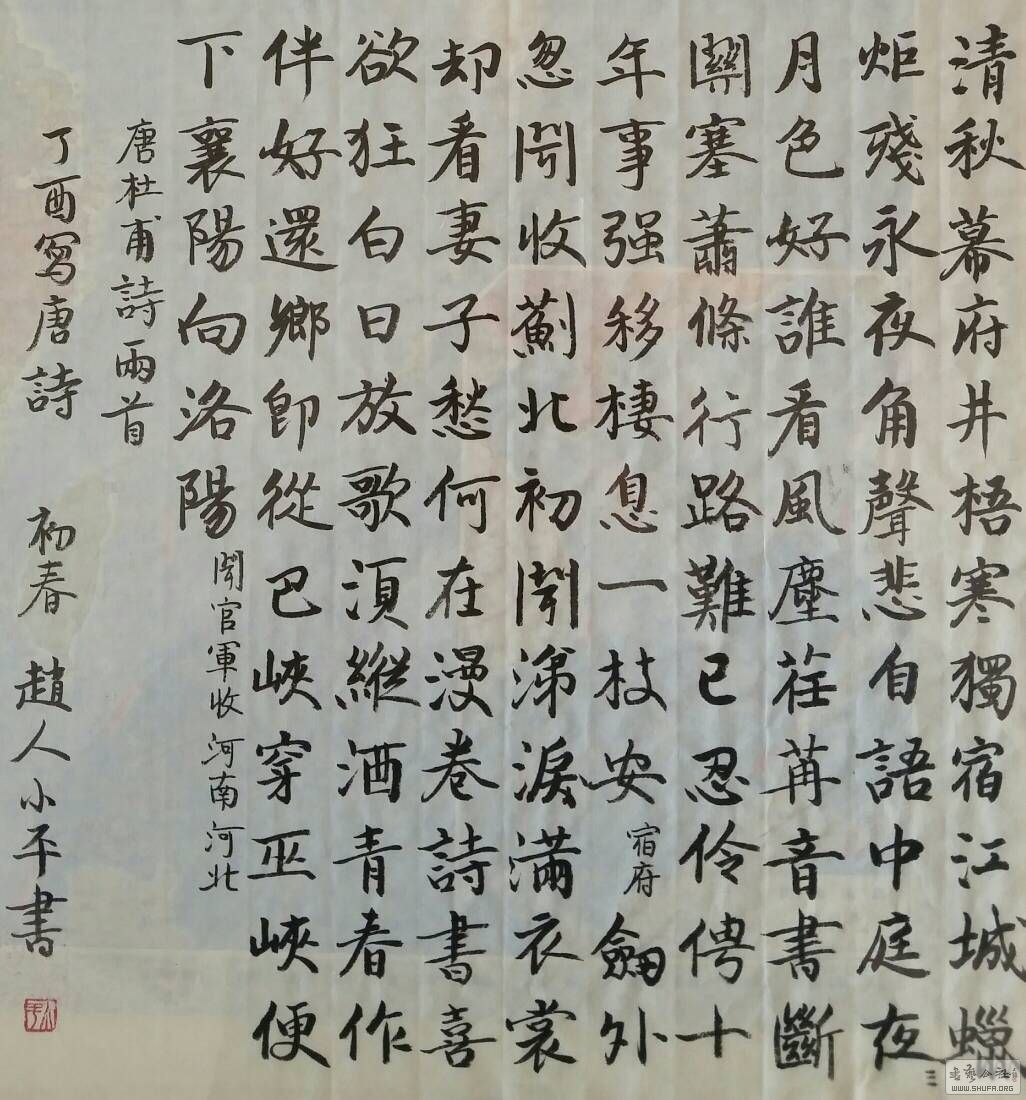 清秋幕府井梧寒獨宿江城蠟
炬殘永夜角聲悲自語中庭夜
月色好誰看風塵荏苒音書斷
關塞蕭條行路難已忍伶俜十
年事强移棲息一枝安 宿府 劔外
忽聞收薊北初聞涕淚滿衣裳
却看妻子愁何在漫卷詩書喜
欲狂白日放歌須縱酒青春作
伴好還鄉即從巴峽穿巫峽便
下襄陽向洛陽 聞官軍收河南河北
唐杜甫詩兩首
丁酉寫唐詩 初春 趙人小平書
WWW.SHUFA.ORG